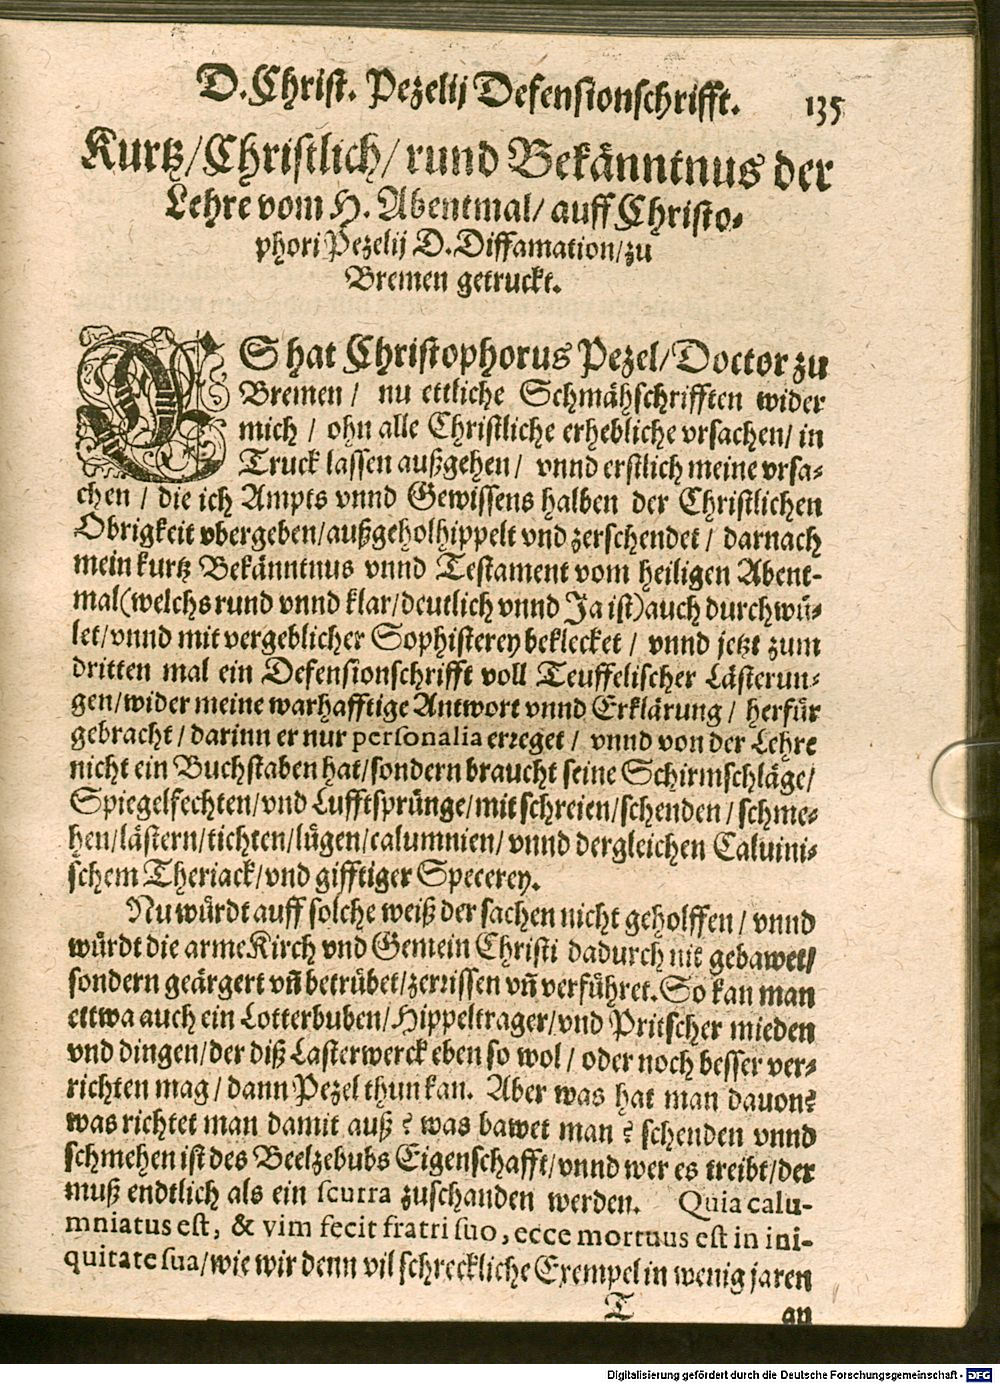 D. Christ. Pezelij Defensionschrifft. 135
Kurtz/Christlich/rund Bekänntnus der
Lehre vom H. Abentmal/ auff Christo-
phori Pezelij D. Diffamation/zu
Bremen getruckt.
ES hat Christophorus Pezel/Doctor zu
Bremen / nu ettliche Schmähschrifften wider
mich / ohn alle Christliche erhebliche vrsachen/ in
Truck lassen außgehen/ vnnd erstlich meine vrsa-
chen / die ich Ampts vnnd Gewissens halben der Christlichen
Obrigkeit vbergeben/außgeholhippelt vnd zerschendet / darnach
mein kurtz Bekänntnus vnnd Testament vom heiligen Abent-
mal(welchs rund vnnd klar/deutlich vnnd Ja ist)auch durchwü-
let/vnnd mit vergeblicher Sophisterey beklecket / vnnd jetzt zum
dritten mal ein Defensionschrifft voll Teuffelischer Lästerun-
gen/wider meine warhafftige Antwort vnnd Erklärung / herfür
gebracht / darinn er nur personalia erreget / vnnd von der Lehre
nicht ein Buchstaben hat/sondern braucht seine Schirmschläge/
Spiegelfechten/vnd Lufftsprünge/mit schreien/schenden / schme-
hen/lästern/tichten/lügen/calumnien/ vnnd dergleichen Caluini-
schem Theriack/vnd gifftiger Specerey.
Nu würdt auff solche weiß der sachen nicht geholffen / vnnd
würdt die arme Kirch vnd Gemein Christi dadurch nit gebawet/
sondern geärgert vñ betrübet/zerrissen vñ verführet. So kan man
ettwa auch ein Lotterbuben/Hippeltrager/vnd Pritscher mieden
vnd dingen/der diß Lasterwerck eben so wol / oder noch besser ver-
richten mag / dann Pezel thun kan. Aber was hat man dauon?
was richtet man damit auß ? was bawet man ? schenden vnnd
schmehen ist des Beelzebubs Eigenschafft/vnnd wer es treibt/der
muß endtlich als ein scurra zuschanden werden. Quia calu-
mniatus est, & vim fecit fratri suo, ecce mortuus est in ini-
quitate sua/wie wir denn vil schreckliche Exempel in wenig jaren
T an
Digitalisierung gefördert durch die Deutsche Forschungsgemeinschaft - DFG